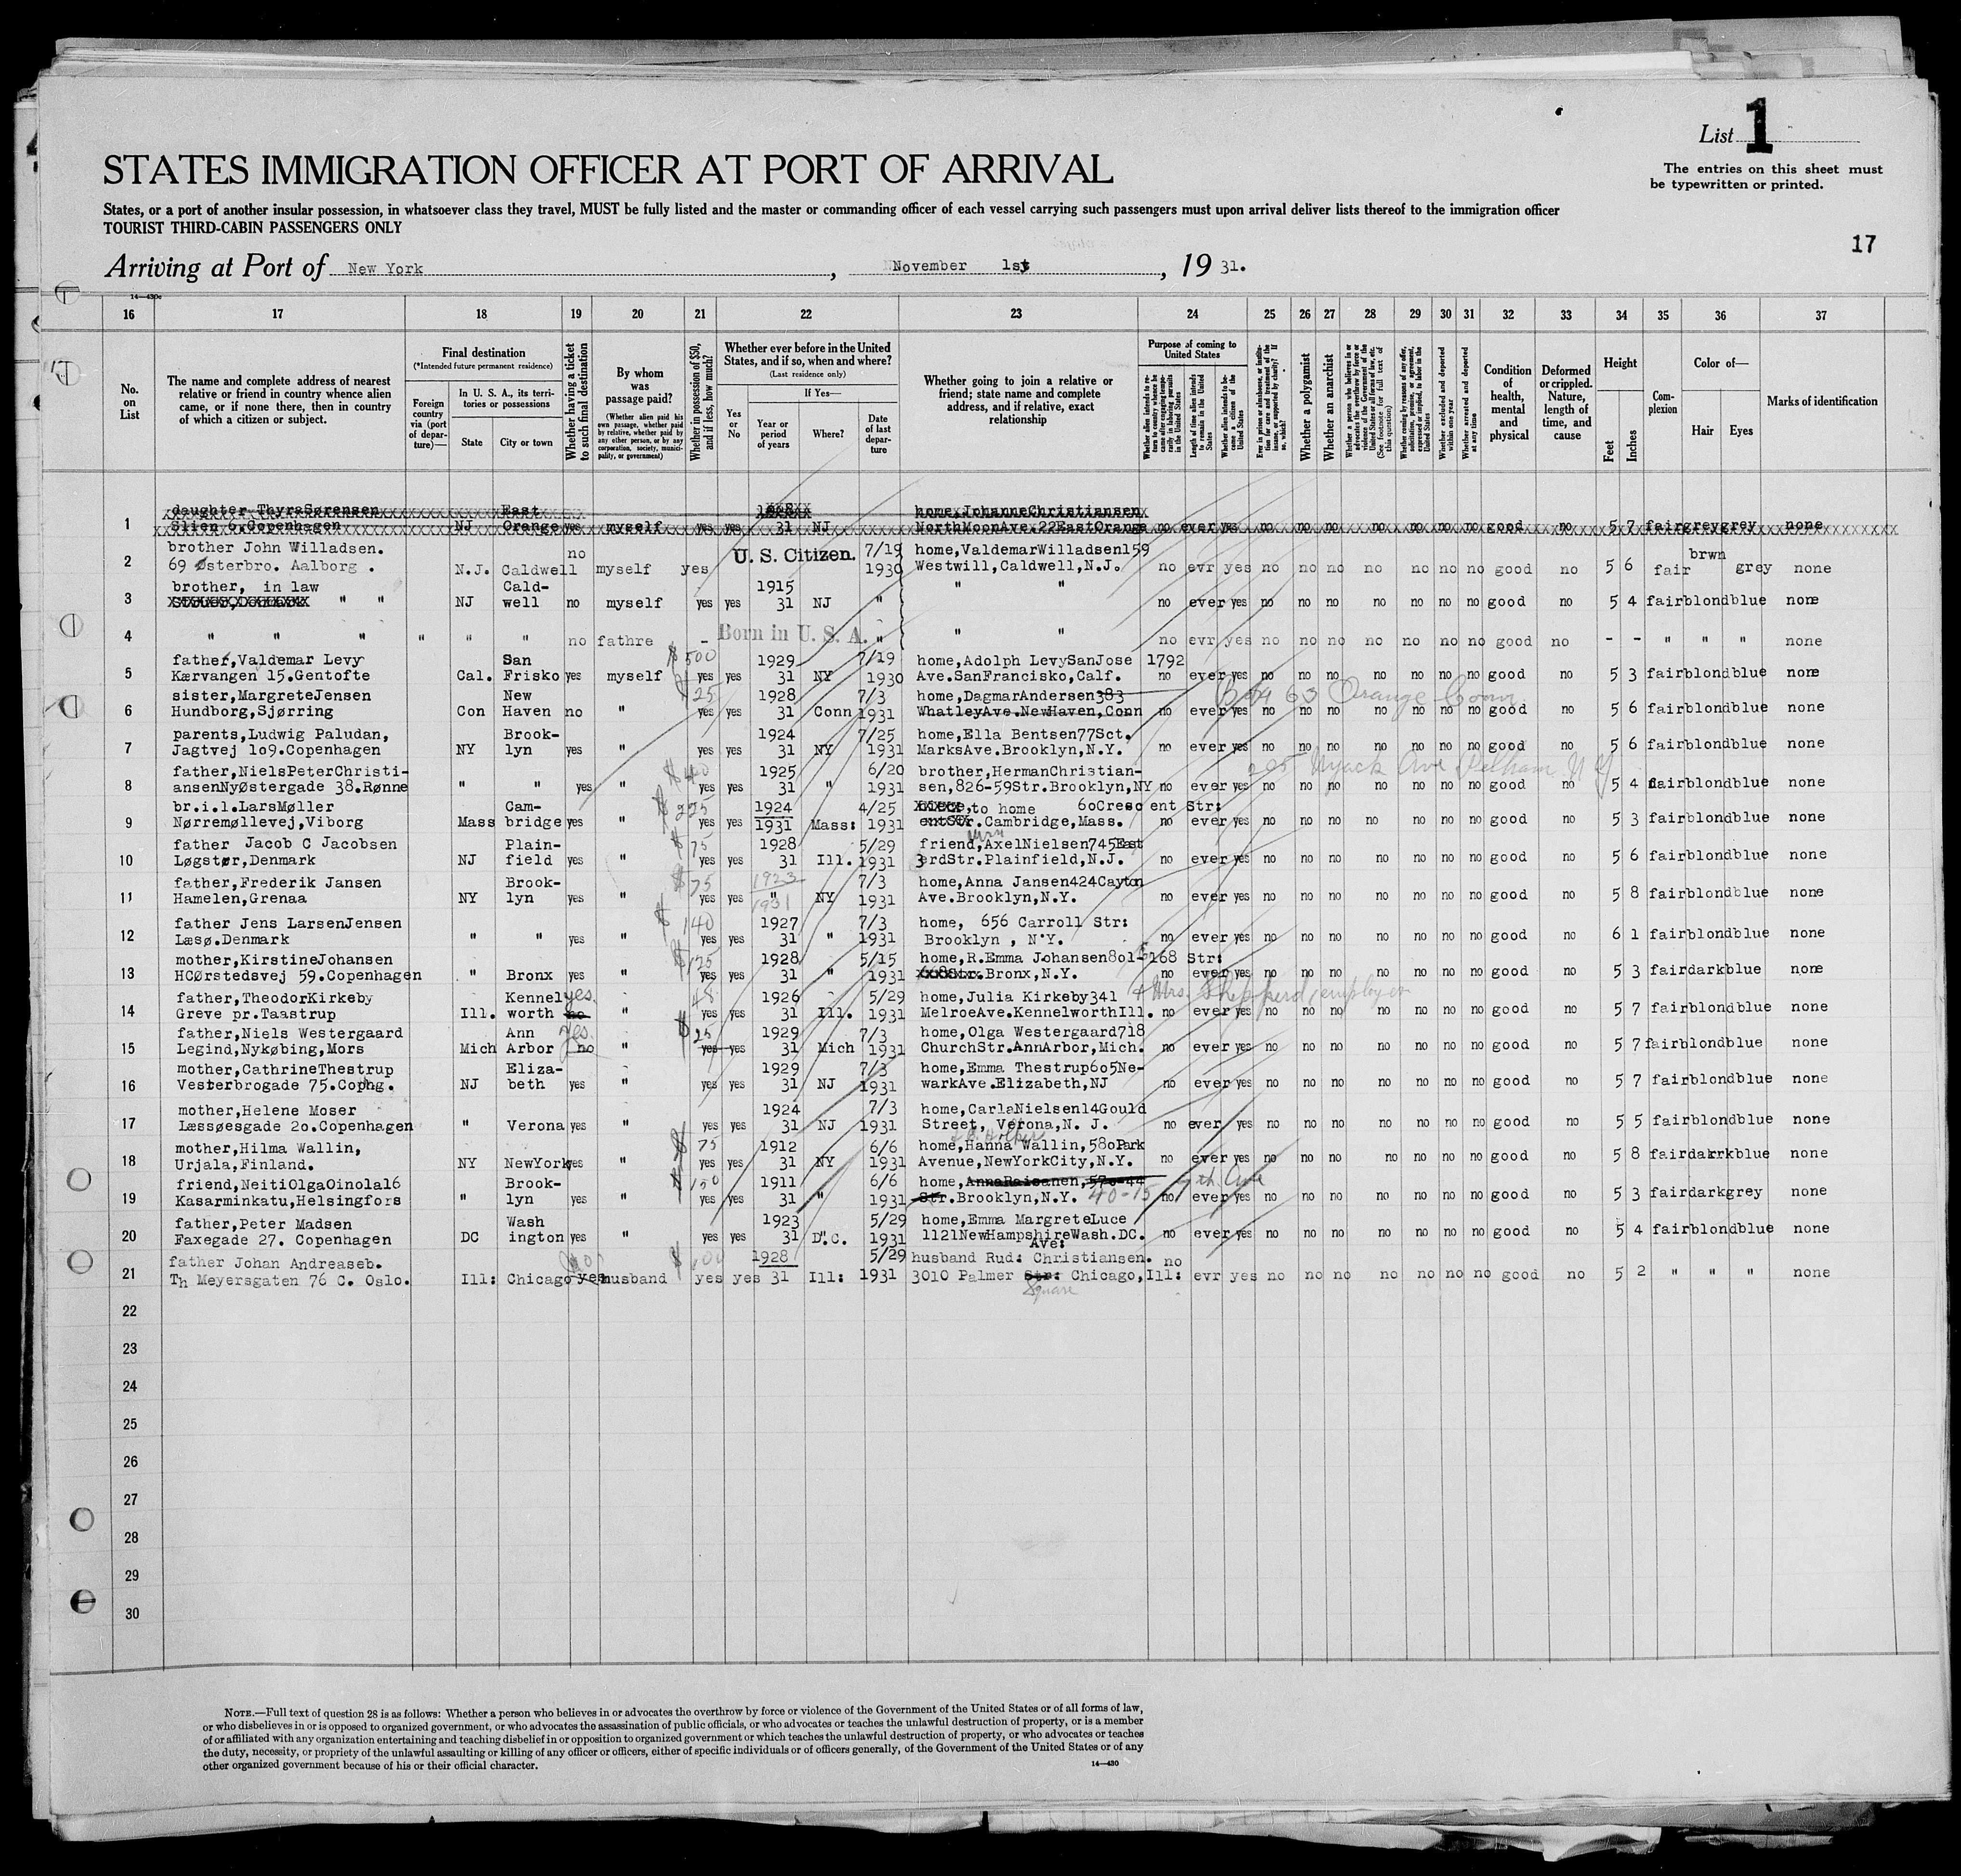 List 1
The entries on this sheet must
be typewritten or printed.
STATES IMMIGRATION OFFICER AT PORT OF ARRIVAL
States, or a port of another insular possession, in whatsoever class they travel, MUST be fully listed and the master or commanding officer of each vessel carrying such passengers must upon arrival deliver lists thereof to the immigration officer
TOURIST THIRD-CABIN PASSENGERS ONLY
17
Arriving at Port of New York, November 1st, 1931.
14—430c
16 17 18 19 20 21 22 23 24 25 26 27 28 29 30 31 32 33 34 35 36 37
No. on List
The name and complete address of nearest relative or friend in country whence alien came, or if none there, then in country of which a citizen or subject.
Final destination
(*Intended future permanent residence)
Foreign country via (port of departure)—
In U. S. A., its territories or possessions
State
City or town
Whether having a ticket to such final destination
By whom was passage paid?
(Whether alien paid his own passage, whether paid by relative, whether paid by any other person, or by any corporation, society, municipality, or government)
Whether in possession of $50, and if less, how much?
Whether ever before in the United States, and if so, when and where?
(Last residence only)
Yes or No
If Yes—
Year or period of years
Where?
Date of last departure
Whether going to join a relative or friend; state name and complete address, and if relative, exact relationship
Purpose of coming to United States
Length of time alien intends to remain in the United States
Whether alien intends to become a citizen of the United States
Whether a polygamist
Whether an anarchist
(See footnote for full text of this question)
Whether excluded and deported within one year
Whether arrested and deported at any time
Condition of health, mental and physical
Deformed or crippled. Nature, length of time, and cause
Height
Feet
Inches
Complexion
Color of—
Hair
Eyes
Marks of identification
daughter ThyraSørensen East home,JohanneChristiansen
1 Slien 6.Copenhagen NJ Orange yes myself yes yes 31 NJ NorthMoonAve.22EastOrange no ever yes no no no no no no no good no 5 7 fair grey grey none
brother John Willadsen. no U. S. Citizen. 7/19 home,ValdemarWilladsen159 brwn
2 69 Østerbro. Aalborg . N.J. Caldwell myself yes 1930 Westwill,Caldwell,N.J. no evr yes no no no no no no no good no 5 6 fair grey none
brother, in law Cald- 1915
3 " " NJ well no myself yes yes 31 NJ " " " no ever yes no no no no no no no good no 5 4 fair blond blue none
4 " " " " " " no fathre - Born in U. S. A. " " " no evr yes no no no no no no no good no - - " " " none
father,Valdemar Levy San $500 1929 7/19 home,Adolph LevySanJose 1792
5 Kærvangen 15.Gentofte Cal. Frisko yes myself yes yes 31 NY 1930 Ave.SanFrancisko,Calf. no ever yes no no no no no no no good no 5 3 fair blond blue none
sister,MargreteJensen New $25 1928 7/3 home,DagmarAndersen383 Box 63 Orange Conn
6 Hundborg,Sjørring Con Haven no " yes yes 31 Conn 1931 WhatleyAve.NewHaven,Conn no ever yes no no no no no no no good no 5 6 fair blond blue none
parents,Ludwig Paludan, Brook- 1924 7/25 home,Ella Bentsen77Sct.
7 Jagtvej 1o9.Copenhagen NY lyn yes " yes yes 31 NY 1931 MarksAve.Brooklyn,N.Y. no ever yes no no no no no no no good no 5 6 fair blond blue none
father,NielsPeterChristi- $40 1925 6/20 brother,HermanChristian- 205 Nyack Ave Pelham N Y
8 ansenNyØstergade 38.Rønne " " yes " yes yes 31 " 1931 sen,826-59Str.Brooklyn,NY no ever yes no no no no no no no good no 5 4 fair blond blue none
br.i.l.LarsMøller Cam- $225 1924 4/25 to home 6oCrescent Str:
9 Nørremøllevej,Viborg Mass bridge yes " yes yes 1931 Mass: 1931 Cambridge,Mass. no ever yes no no no no no no no good no 5 3 fair blond blue none
father Jacob C Jacobsen Plain- $75 1928 5/29 friend,AxelNielsen745East
10 Løgstør,Denmark NJ field yes " yes yes 31 Ill. 1931 3erdStr.Plainfield,N.J. no ever yes no no no no no no no good no 5 6 fair blond blue none
father,Frederik Jansen Brook- $75 1923 7/3 home,Anna Jansen424Cayton
11 Hamelen,Grenaa NY lyn yes " yes yes " 1931 NY 1931 Ave.Brooklyn,N.Y. no ever yes no no no no no no no good no 5 8 fair blond blue none
father Jens LarsenJensen $140 1927 7/3 home, 656 Carroll Str:
12 Læsø.Denmark " " yes " yes yes 31 " 1931 Brooklyn , N.Y. no ever yes no no no no no no no good no 6 1 fair blond blue none
mother,KirstineJohansen $125 1928 5/15 home,R.Emma Johansen8o1-E168 Str:
13 HCØrstedsvej 59.Copenhagen " Bronx yes " yes yes 31 " 1931 Bronx,N.Y. no ever yes no no no no no no no good no 5 3 fair dark blue none
father,TheodorKirkeby Kennel yes. 48 1926 5/29 home,Julia Kirkeby341 Mrs. Shepherd, employer
14 Greve pr.Taastrup Ill. worth no " yes yes 31 Ill. 1931 MelroeAve.KennelworthIll. no ever yes no no no no no no no good no 5 7 fair blond blue none
father,Niels Westergaard Ann yes. $25 1929 7/3 home,Olga Westergaard718
15 Legind,Nykøbing,Mors Mich Arbor no " yes yes 31 Mich 1931 ChurchStr.AnnArbor,Mich. no ever yes no no no no no no no good no 5 7 fair blond blue none
mother,CathrineThestrup Eliza- 1929 7/3 home,Emma Thestrup6o5Ne-
16 Vesterbrogade 75.Cophg. NJ beth yes " yes yes 31 NJ 1931 warkAve.Elizabeth,NJ no ever yes no no no no no no no good no 5 7 fair blond blue none
mother,Helene Moser 1924 7/3 home,CarlaNielsen14Gould
17 Læssøesgade 2o.Copenhagen " Verona yes " yes yes 31 NJ 1931 Street, Verona,N. J. no ever yes no no no no no no no good no 5 5 fair blond blue none
mother,Hilma Wallin, $75 1912 6/6 home,Hanna Wallin,58oPark
18 Urjala,Finland. NY NewYork yes " yes yes 31 NY 1931 Avenue,NewYorkCity,N.Y. no ever yes no no no no no no no good no 5 8 fair darrk blue none
friend,NeitiOlgaOinola16 Brook- $150 1911 6/6 home,AnnaRaisanen,57o-44 th Ave
19 Kasarminkatu,Helsingfors " lyn yes " yes yes 31 " 1931 Str.Brooklyn,N.Y. 40-15 no ever yes no no no no no no no good no 5 3 fair dark grey none
father,Peter Madsen Wash 1923 5/29 home,Emma MargreteLuce
20 Faxegade 27. Copenhagen DC ington yes " yes yes 31 D.C. 1931 1121NewHampshireWash.DC. no ever yes no no no no no no no good no 5 4 fair blond blue none
Ave:
father Johan Andreaseb. $100 1928 5/29 husband Rud: Christiansen. no
21 Th Meyersgaten 76 C. Oslo. Ill: Chicago yes husband yes yes 31 Ill: 1931 3010 Palmer Str: Chicago,Ill: evr yes no no no no no no no good no 5 2 " " " none
Square
22
23
24
25
26
27
28
29
30
NOTE.—Full text of question 28 is as follows: Whether a person who believes in or advocates the overthrow by force or violence of the Government of the United States or of all forms of law,
or who disbelieves in or is opposed to organized government, or who advocates the assassination of public officials, or who advocates or teaches the unlawful destruction of property, or is a member
of or affiliated with any organization entertaining and teaching disbelief in or opposition to organized government or which teaches the unlawful destruction of property, or who advocates or teaches
the duty, necessity, or propriety of the unlawful assaulting or killing of any officer or officers, either of specific individuals or of officers generally, of the Government of the United States or of any
other organized government because of his or their official character.
14—430